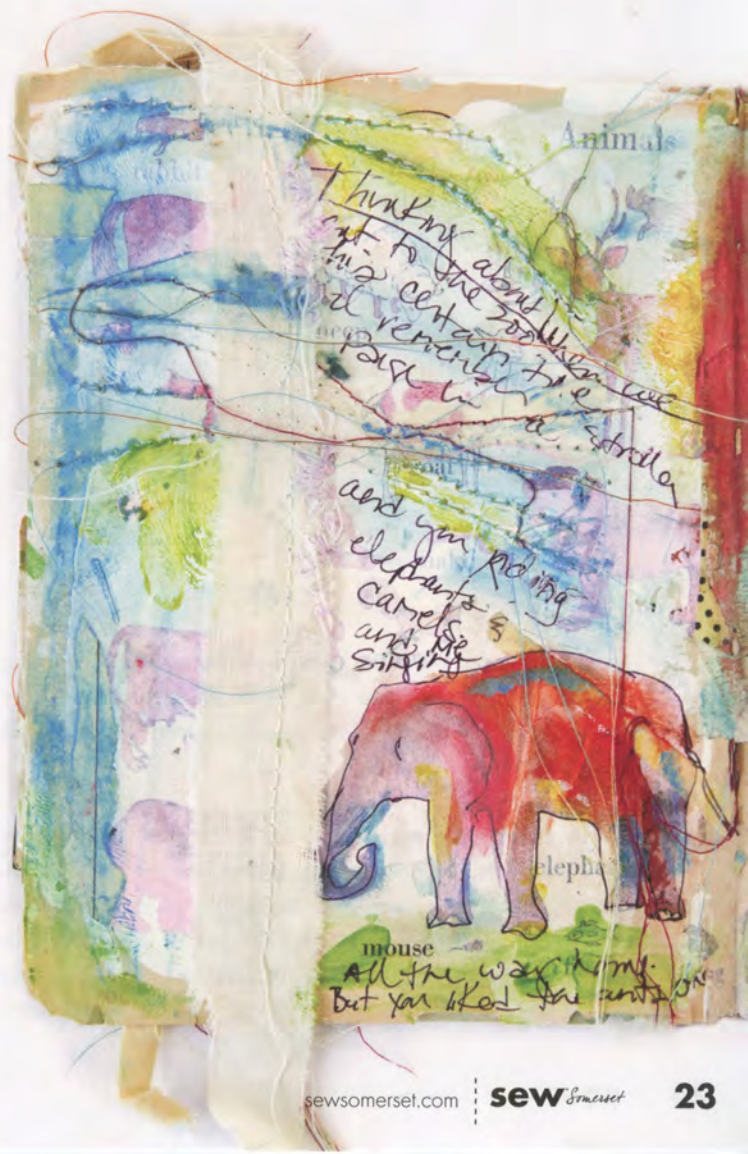 Animals
rabbit
Thinking about
out to the zoo when we
this certain time
I remember
back in a stroller
goat
and you riding
elephants &
camels
and me
singing
elepha
mouse
All the way home.
But you liked the ants
sewsomerset.com sew Somerset 23